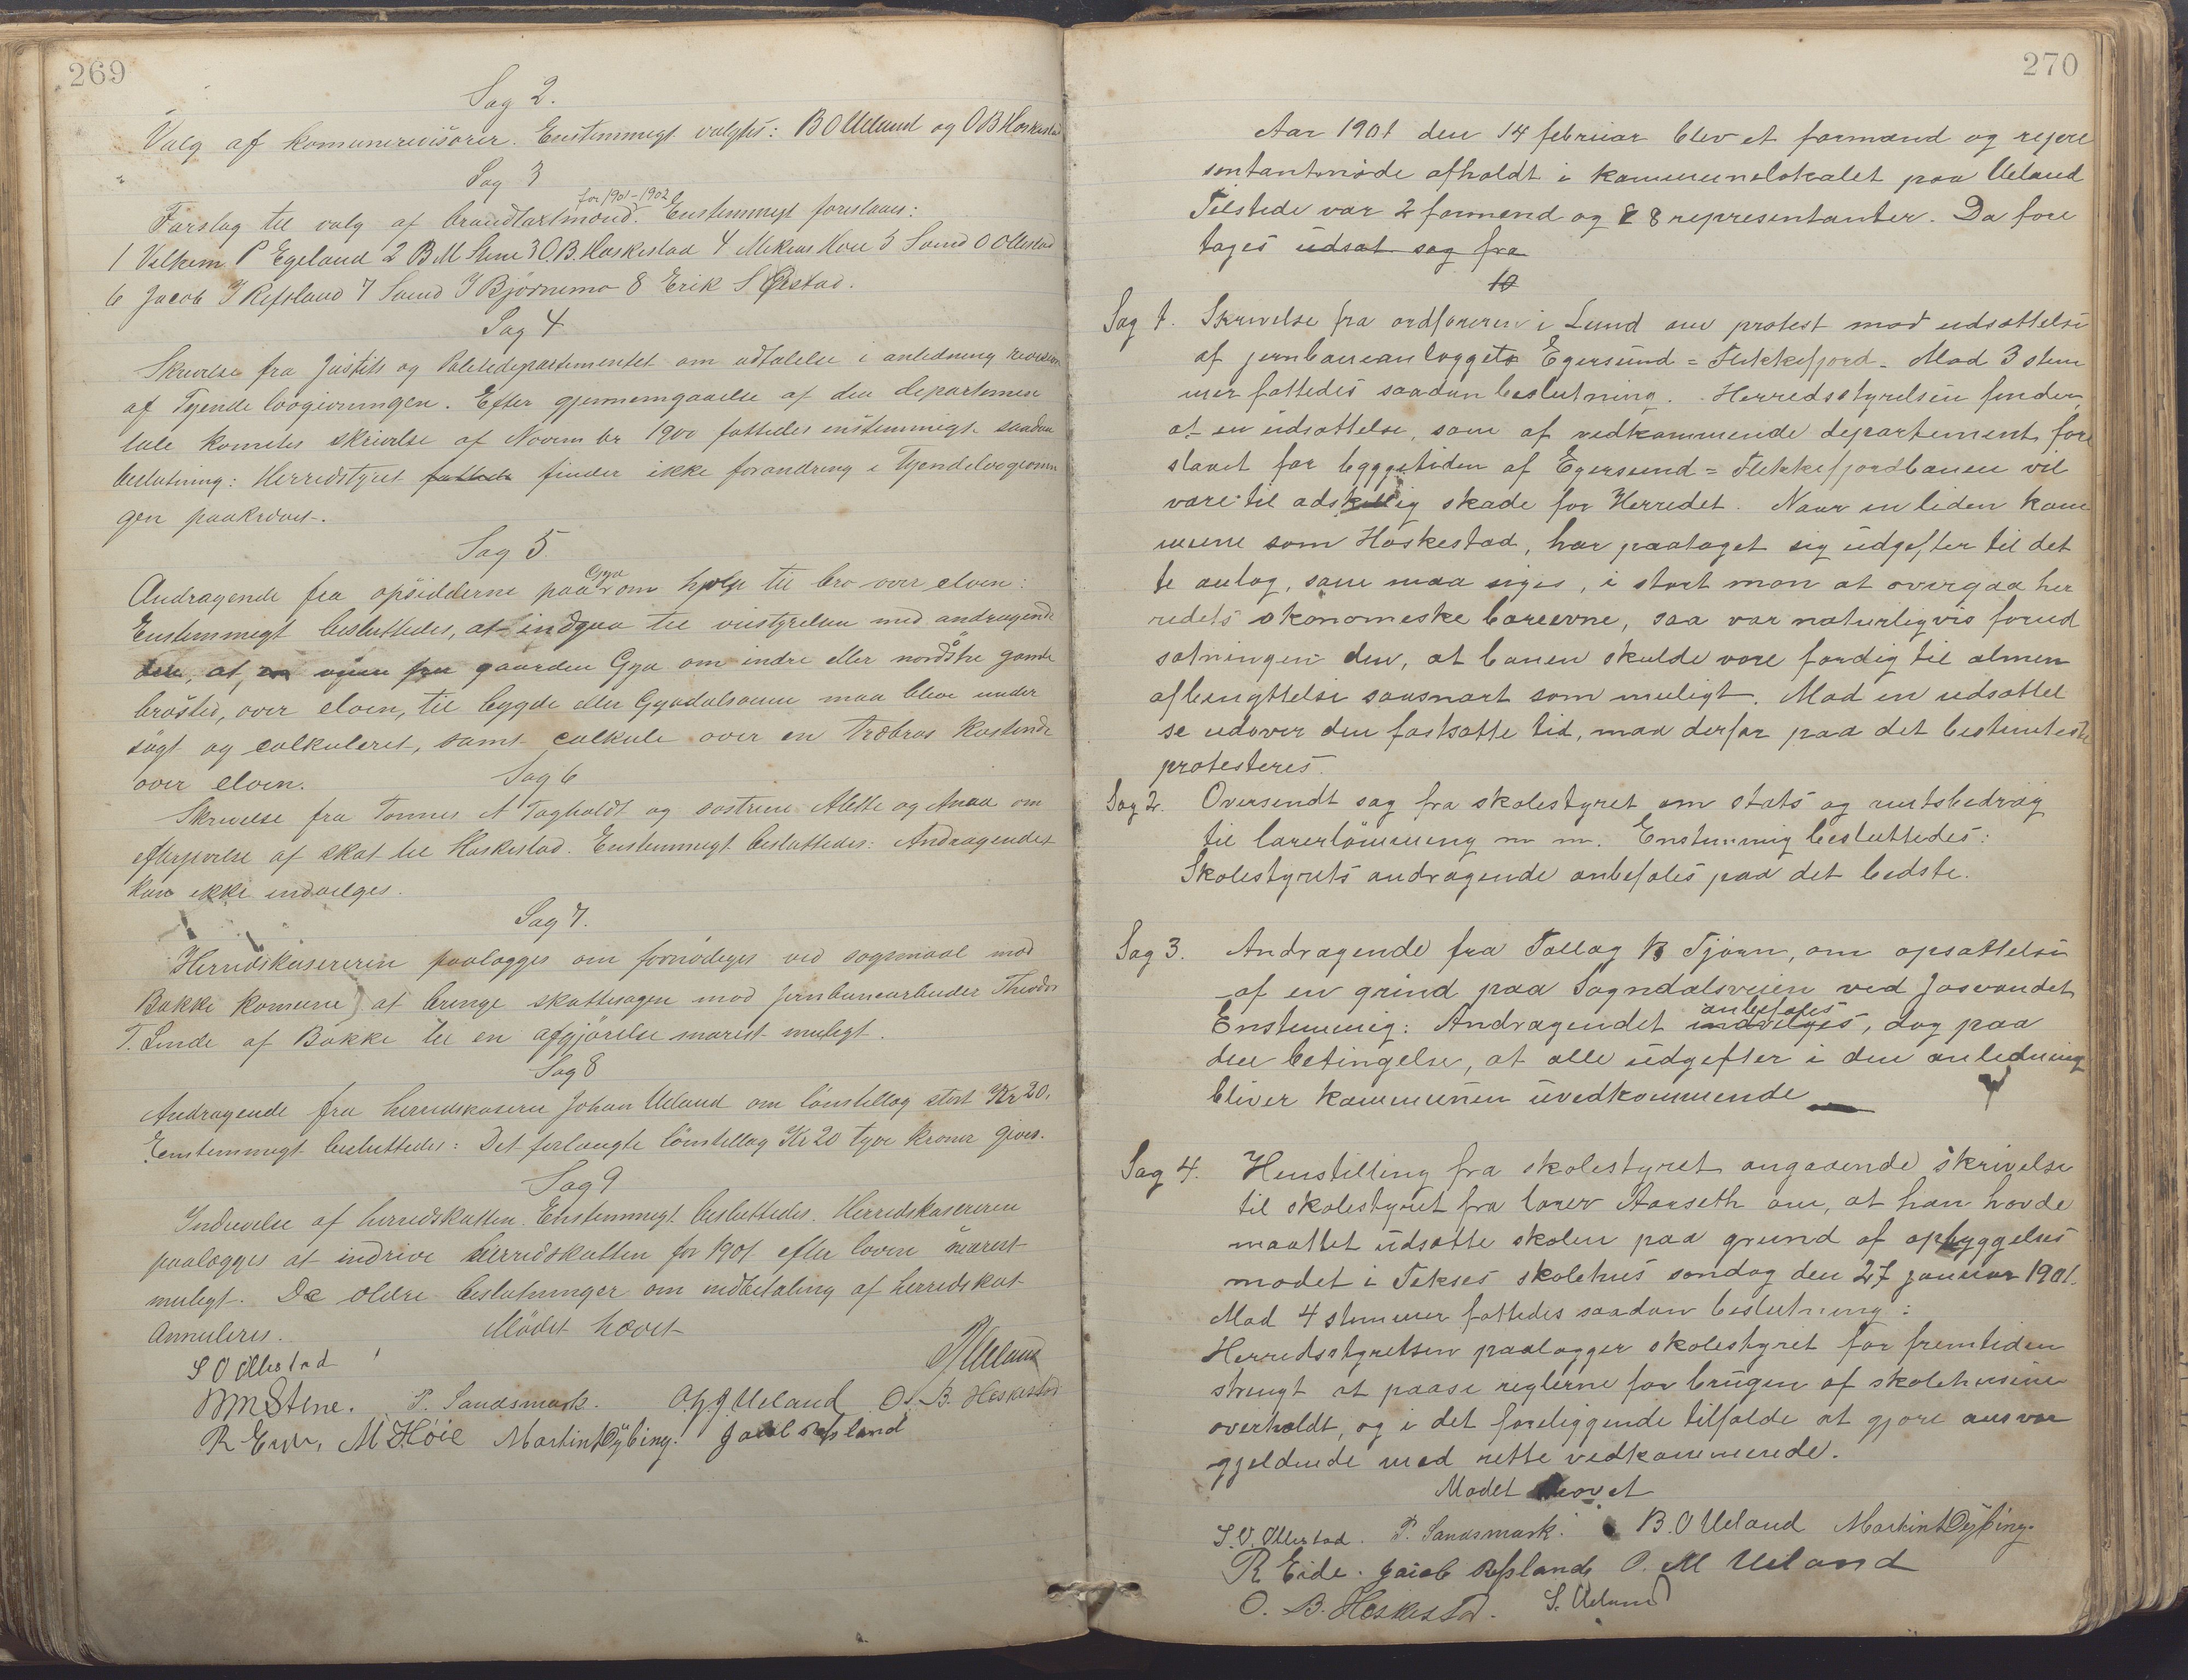 269
Sag 2.
Valg af komunerevisörer. Enstemmigt valgtes: B O Ueland og O B Heskestad
Sag 3
for 1901-1902
Forslag til valg af brandtaxtmænd. Enstemmigt foreslaaes:
1 Velhem P Egeland 2 B M Stene 3 O. B. Heskestad 4 Mikias Höie 5 Svend O Ollestad
6 Jacob I Refsland 7 Svend I Björnemo 8 Erik S Ørstad.
Sag 4
Skrivelse fra Justits og Politidepartementet om udtalelse i anledning revision
af Tyende lovgivningen. Efter gjennemgaaelse af den departemen
tale komites skrivelse af Novm br 1900 fattedes enstemmigt saadan
beslutning: Herredstyret fattede finder ikke forandring i Tyendelovgivnin
gen paakrævet.
Sag 5
Andragende fra opsidderne paa Gya om hjælp til bro over elven:
Enstemmigt besluttedes, at indgaa til veistyrelsen med andragende
at, en veien fra gaarden Gya om indre eller nordstre gamle
brösted, over elven, til bygde eller Gyadalsveien maa blive under
sögt og calkuleret, samt calkule over en Træbros kostende
over elven.
Sag 6
Skrivelse fra Tönnes A Tagholdt og söstrene Alette og Anna om
eftergivelse af skat til Heskestad. Enstemmigt besluttedes: Andragendet
kan ikke indvilges.
Sag 7.
Herredskassereren paalægges om fornödeges ved sögsmaal mod
Bakke komune at bringe skattesagen mod jernbanearbeider Theodor
T. Linde af Bakke til en afgjörelse snarest muligt.
Sag 8
Andragende fra herredskaserer Johan Ueland om lönstillæg stort Kr 20.
Enstemmigt besluttedes: Det forlangte lönstillæg Kr 20 tyve kroner gives.
Sag 9
Inddrivelse af herredskatten. Enstemmigt besluttedes. Herredskasereren
paalægges at indrive herredskatten for 1901 efter loven snarest
muligt. De ældre beslutninger om indbetaling af herredskat
Annuleres. Mödet hævet
S O Ollestad
B M Stene. P. Sandsmark. O. G. J. Ueland O. B. Heskestad
R Eide, M Höie Martin T Dybing. Jacob Refsland
270
Aar 1901 den 14 februar blev et formænd og repre
sentantmöde afholdt i kommunelokalet paa Ueland
Tilstede var 2 formend og 8 representanter. Da fore
tages udsat sag fra
10
Sag 1. Skrivelse fra ordföreren i Lund om protest mod udsættelse
af jernbaneanlægget Egersund = Flekkefjord. Mod 3 stem
mer fattedes saadan beslutning. Herredsstyrelsen finder,
at en udsættelse, som af vedkommende departement, fore
slaaet for byggetiden af Egersund = Flekkefjordbanen vil
være til adskillig skade for Herredet. Naar en liden kom
mune som Heskestad, har paataget sig udgifter til det
te anlæg, som maa siges, i stort mon at overgaa her
redets økonomeske bæreevne, saa var naturligvis forud
sætningen den, at banen skulde være færdig til almen
afbenyttelse saasnart som muligt. Mod en udsættel
se udover den fastsatte tid, maa derfor paa det bestemteste
protesteres.
Sag 2. Oversendt sag fra skolestyret om stats og amtsbedrag
til lærerlönning m m. Enstemmig besluttedes:
Skolestyrets andragende anbefales paa det bedste.
Sag 3. Andragende fra Tallag B Tjörn, om opsættelse
af en grind paa Sogndalsveien ved Josvandet
anbefales
Enstemmig: Andragendet indvilges, dog paa
den betingelse, at alle udgifter i den anledning
bliver kommunen uvedkommende
Sag 4. Henstilling fra skolestyret angaaende skrivelse
til skolestyret fra lærer Aarseth om, at han havde
maattet udsætte skolen paa grund af opbyggelses
mödet i Tekses skolehus söndag den 27 januar 1901.
Mod 4 stemmer fattedes saadan beslutning:
Herredsstyrelsen paalægger skolestyret for fremtiden
strengt at paase reglerne for brugen af skolehusene
overholdt, og i det foreliggende tilfælde at gjöre ansvar
gjeldende med rette vedkommende.
Mödet hævet
S. O. Ollestad. P. Sandsmark. B. O Ueland Martin T Dybing.
R Eide. Jacob Refsland, O. M Ueland
O. B. Heskestad. S. Ueland